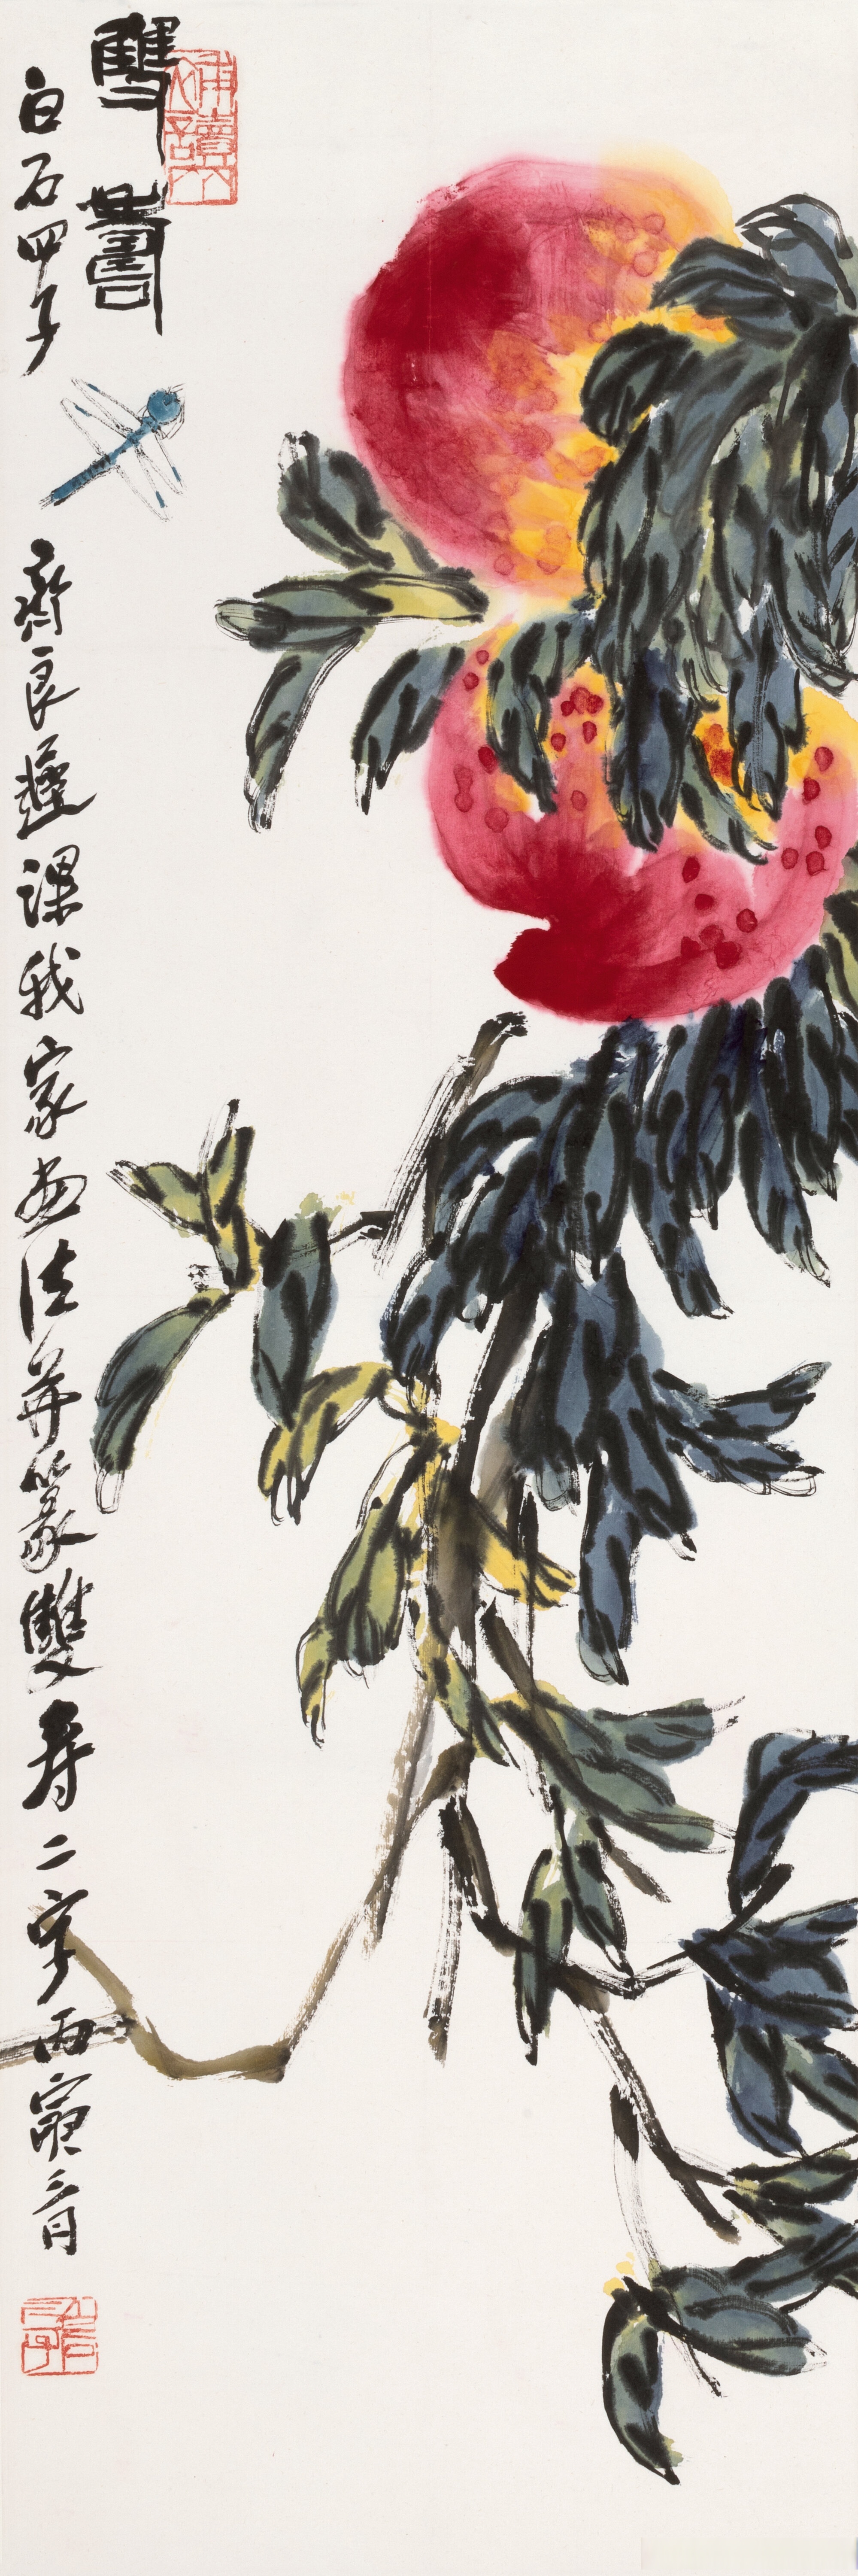 雙壽
白石四子齊良遲課我家画法并篆雙壽二字丙寅三月